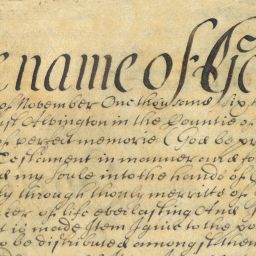 name of G
of November One thousand six h
Abington in the Countie o
of perfect memorie (God be pr
Testament in manner and fo
d my soule into the hands of
ly through thonly merritts of
tor of life everlasting And
t is made Item I give to the po
o be distributed amongst them